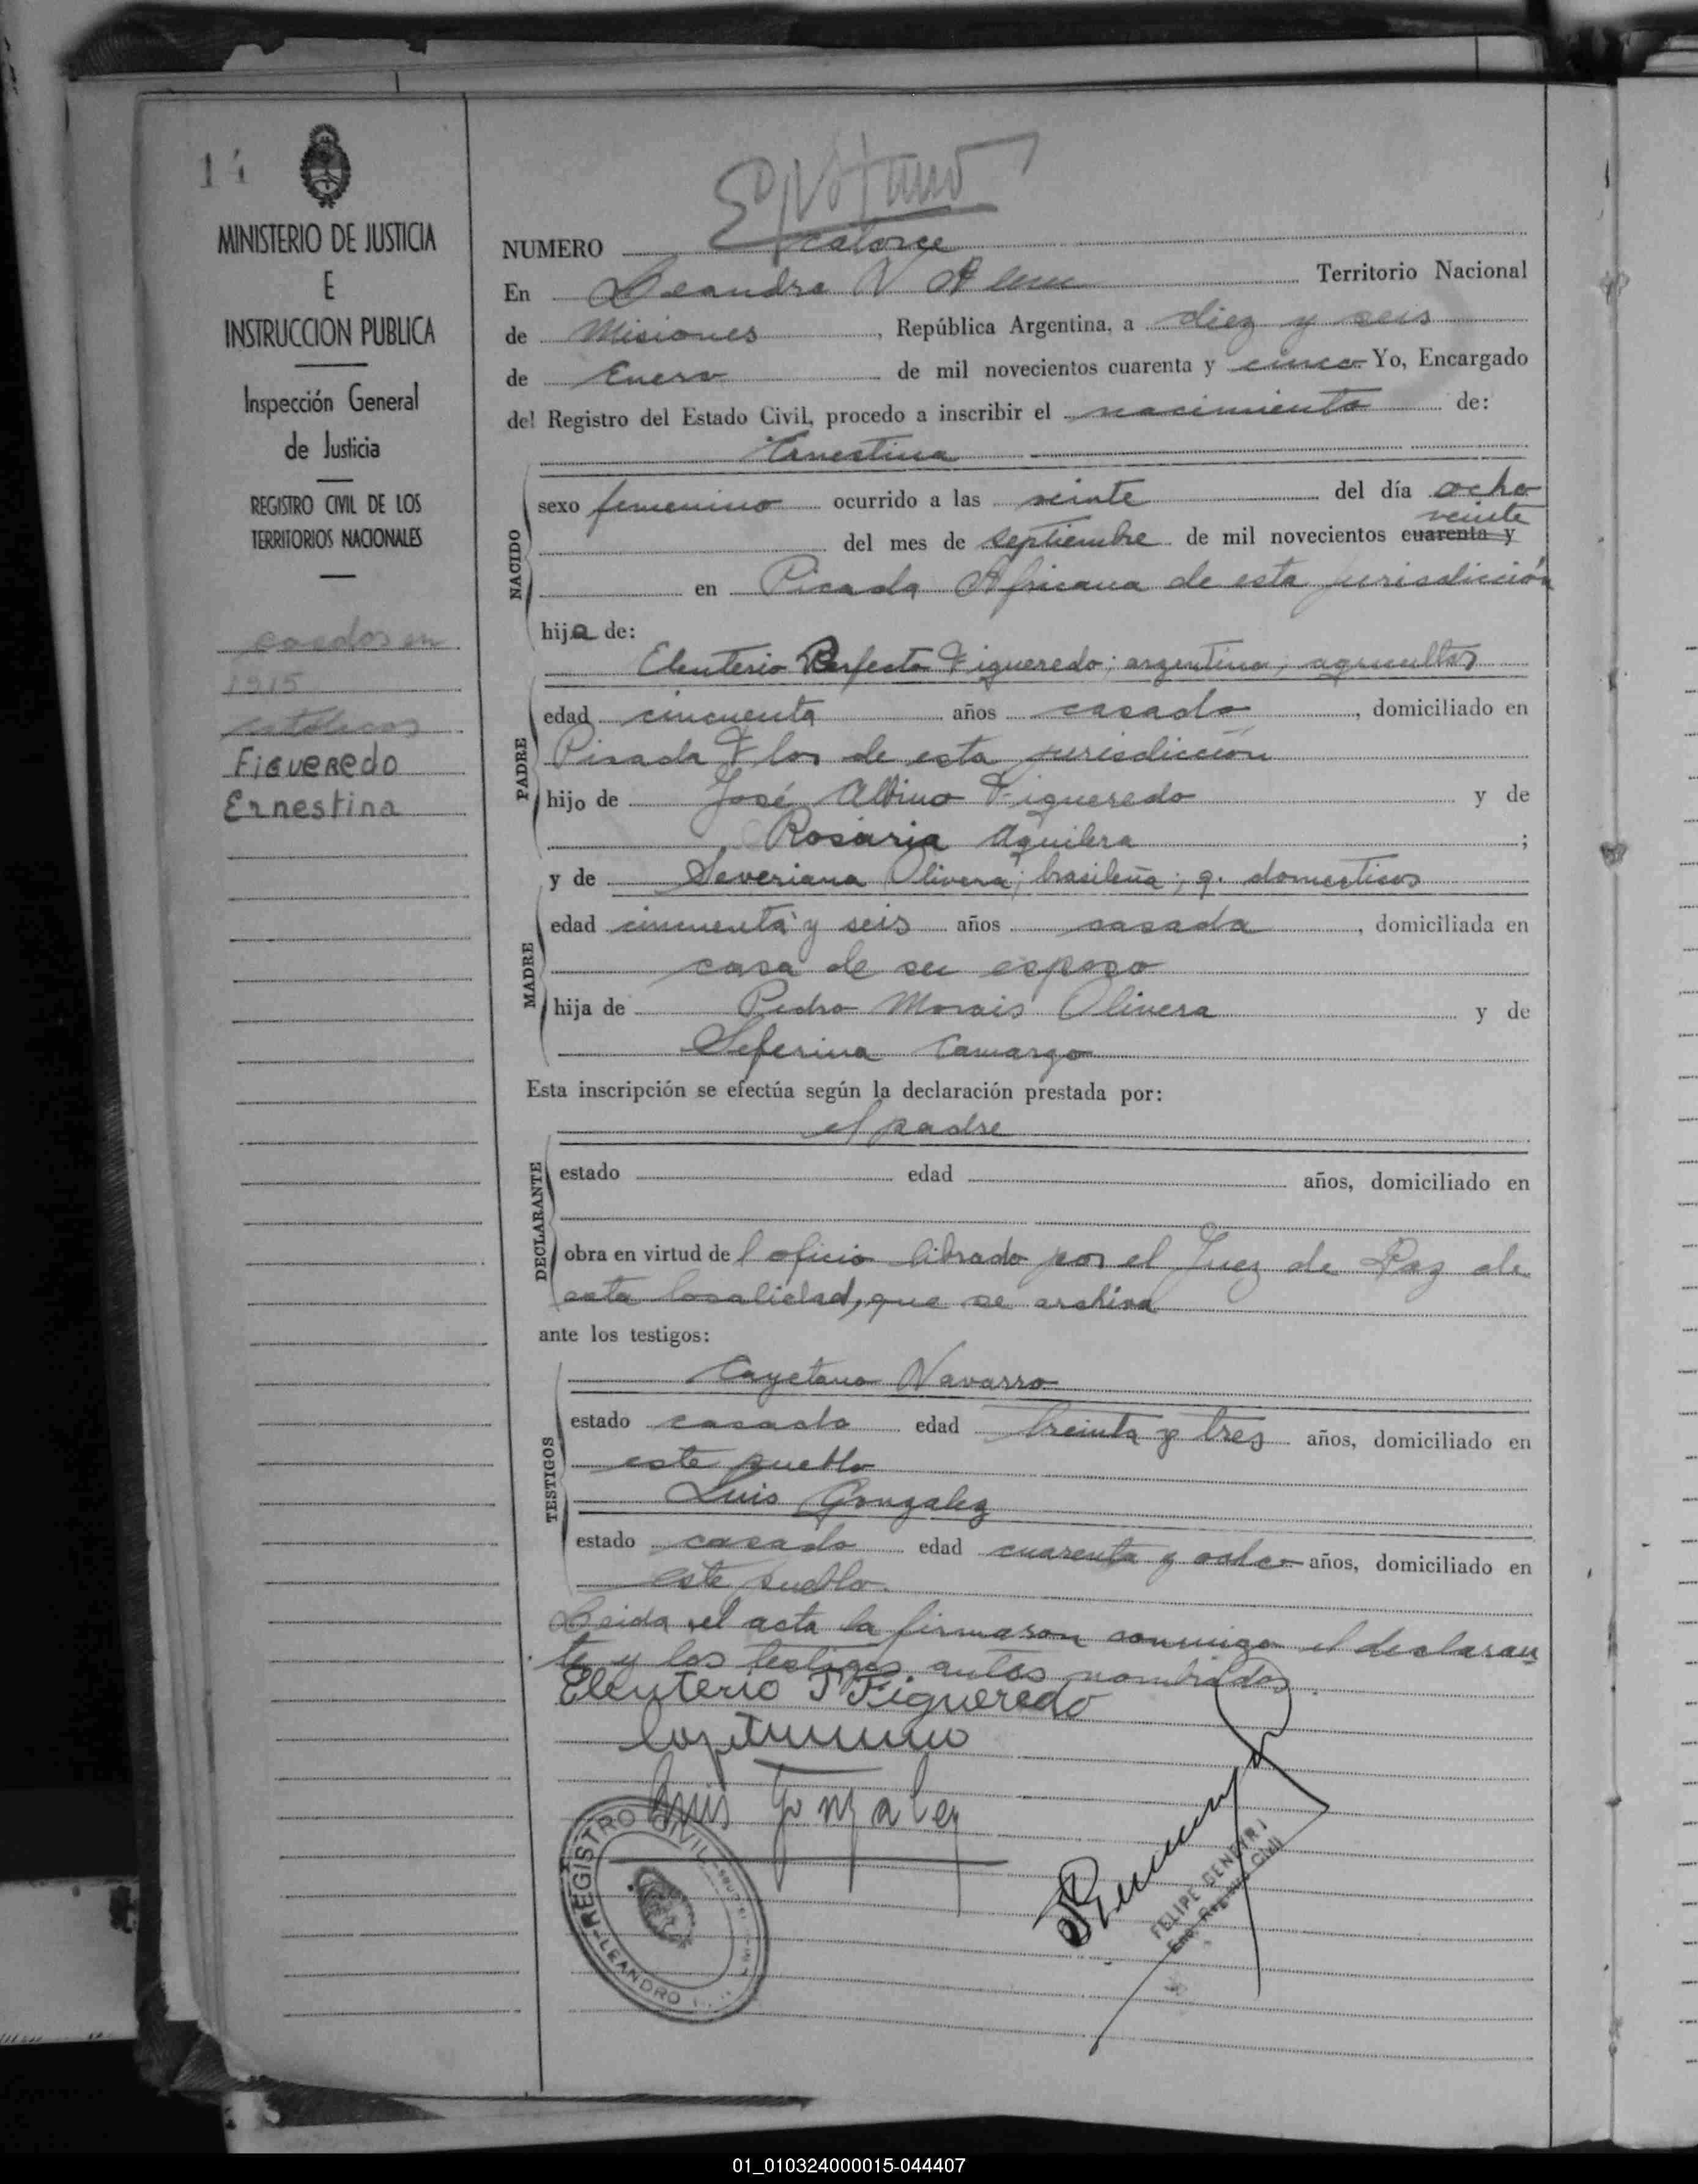 14
MINISTERIO DE JUSTICIA
E
INSTRUCCION PUBLICA
Inspección General
de Justicia
REGISTRO CIVIL DE LOS
TERRITORIOS NACIONALES
casados en
1915
católicos
Figueredo
Ernestina
NUMERO catorce
En Leandro N Alem Territorio Nacional
de Misiones, República Argentina, a diez y seis
de Enero de mil novecientos cuarenta y cinco Yo, Encargado
del Registro del Estado Civil, procedo a inscribir el nacimiento de:
Ernestina
NACIDO
sexo femenino ocurrido a las veinte del día ocho
veinte
del mes de septiembre de mil novecientos cuarenta y
en Picada Africana de esta jurisdicción
hija de:
PADRE
Eleuterio Perfecto Figueredo; argentino; agricultor
edad cincuenta años casado, domiciliado en
Picada Flor de esta jurisdicción
hijo de José Albino Figueredo y de
Rosaria Aguilera;
MADRE
y de Severiana Olivera; brasileña; q. domesticos
edad cincuenta y seis años casada, domiciliada en
casa de su esposo
hija de Pedro Morais Olivera y de
Seferina Camargo
Esta inscripción se efectúa según la declaración prestada por:
DECLARANTE
el padre
estado edad años, domiciliado en
obra en virtud del oficio librado por el Juez de Paz de
esta localidad, que se archiva
ante los testigos:
TESTIGOS
Cayetano Navarro
estado casado edad treinta y tres años, domiciliado en
este pueblo
Luis Gonzalez
estado casado edad cuarenta y ocho años, domiciliado en
este pueblo.
Leida el acta la firmaron conmigo el declaran
te y los testigos antes nombrados.
Eleuterio P Figueredo
Luis Gonzalez
REGISTRO CIVIL
LEANDRO
FELIPE GENEYRI
Enc. Registro Civil
01_010324000015-044407